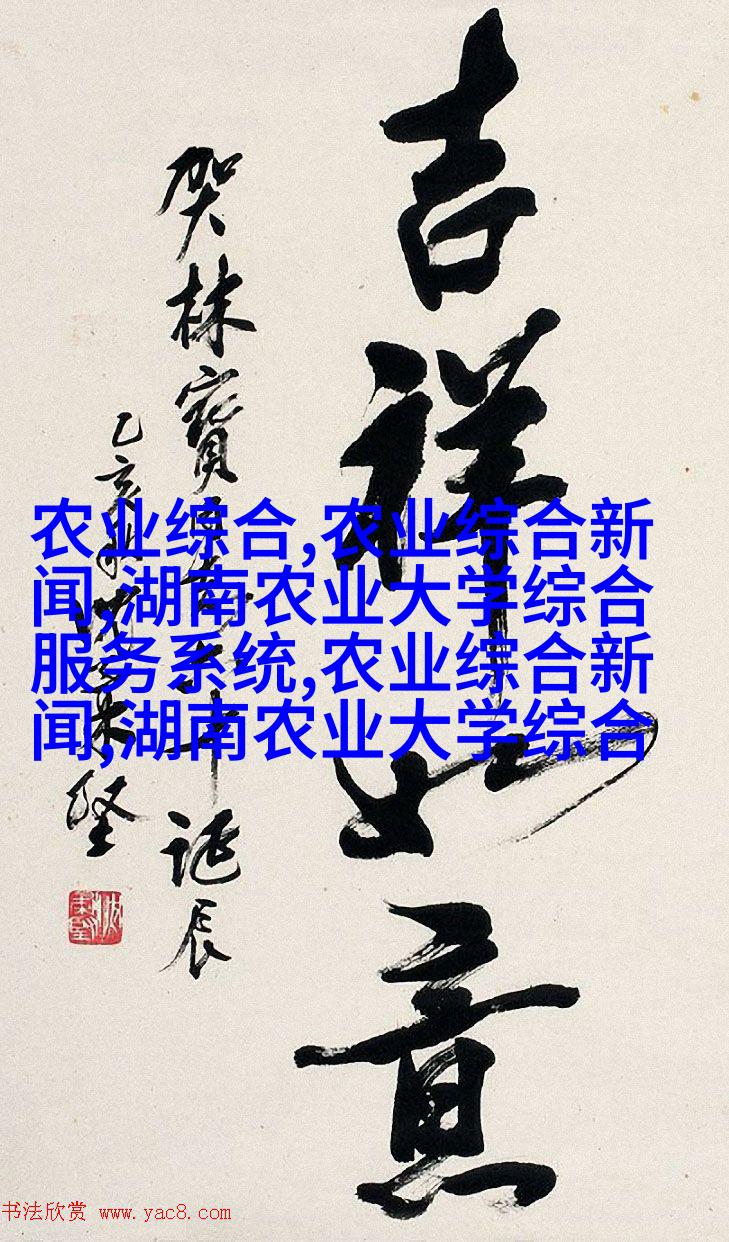 吉祥如意
贺林宝
诞辰
乙亥
农业综合,农业综合新
闻,湖南农业大学综合
服务系统,农业综合新
闻,湖南农业大学综合
书法欣赏 www.yac8.com